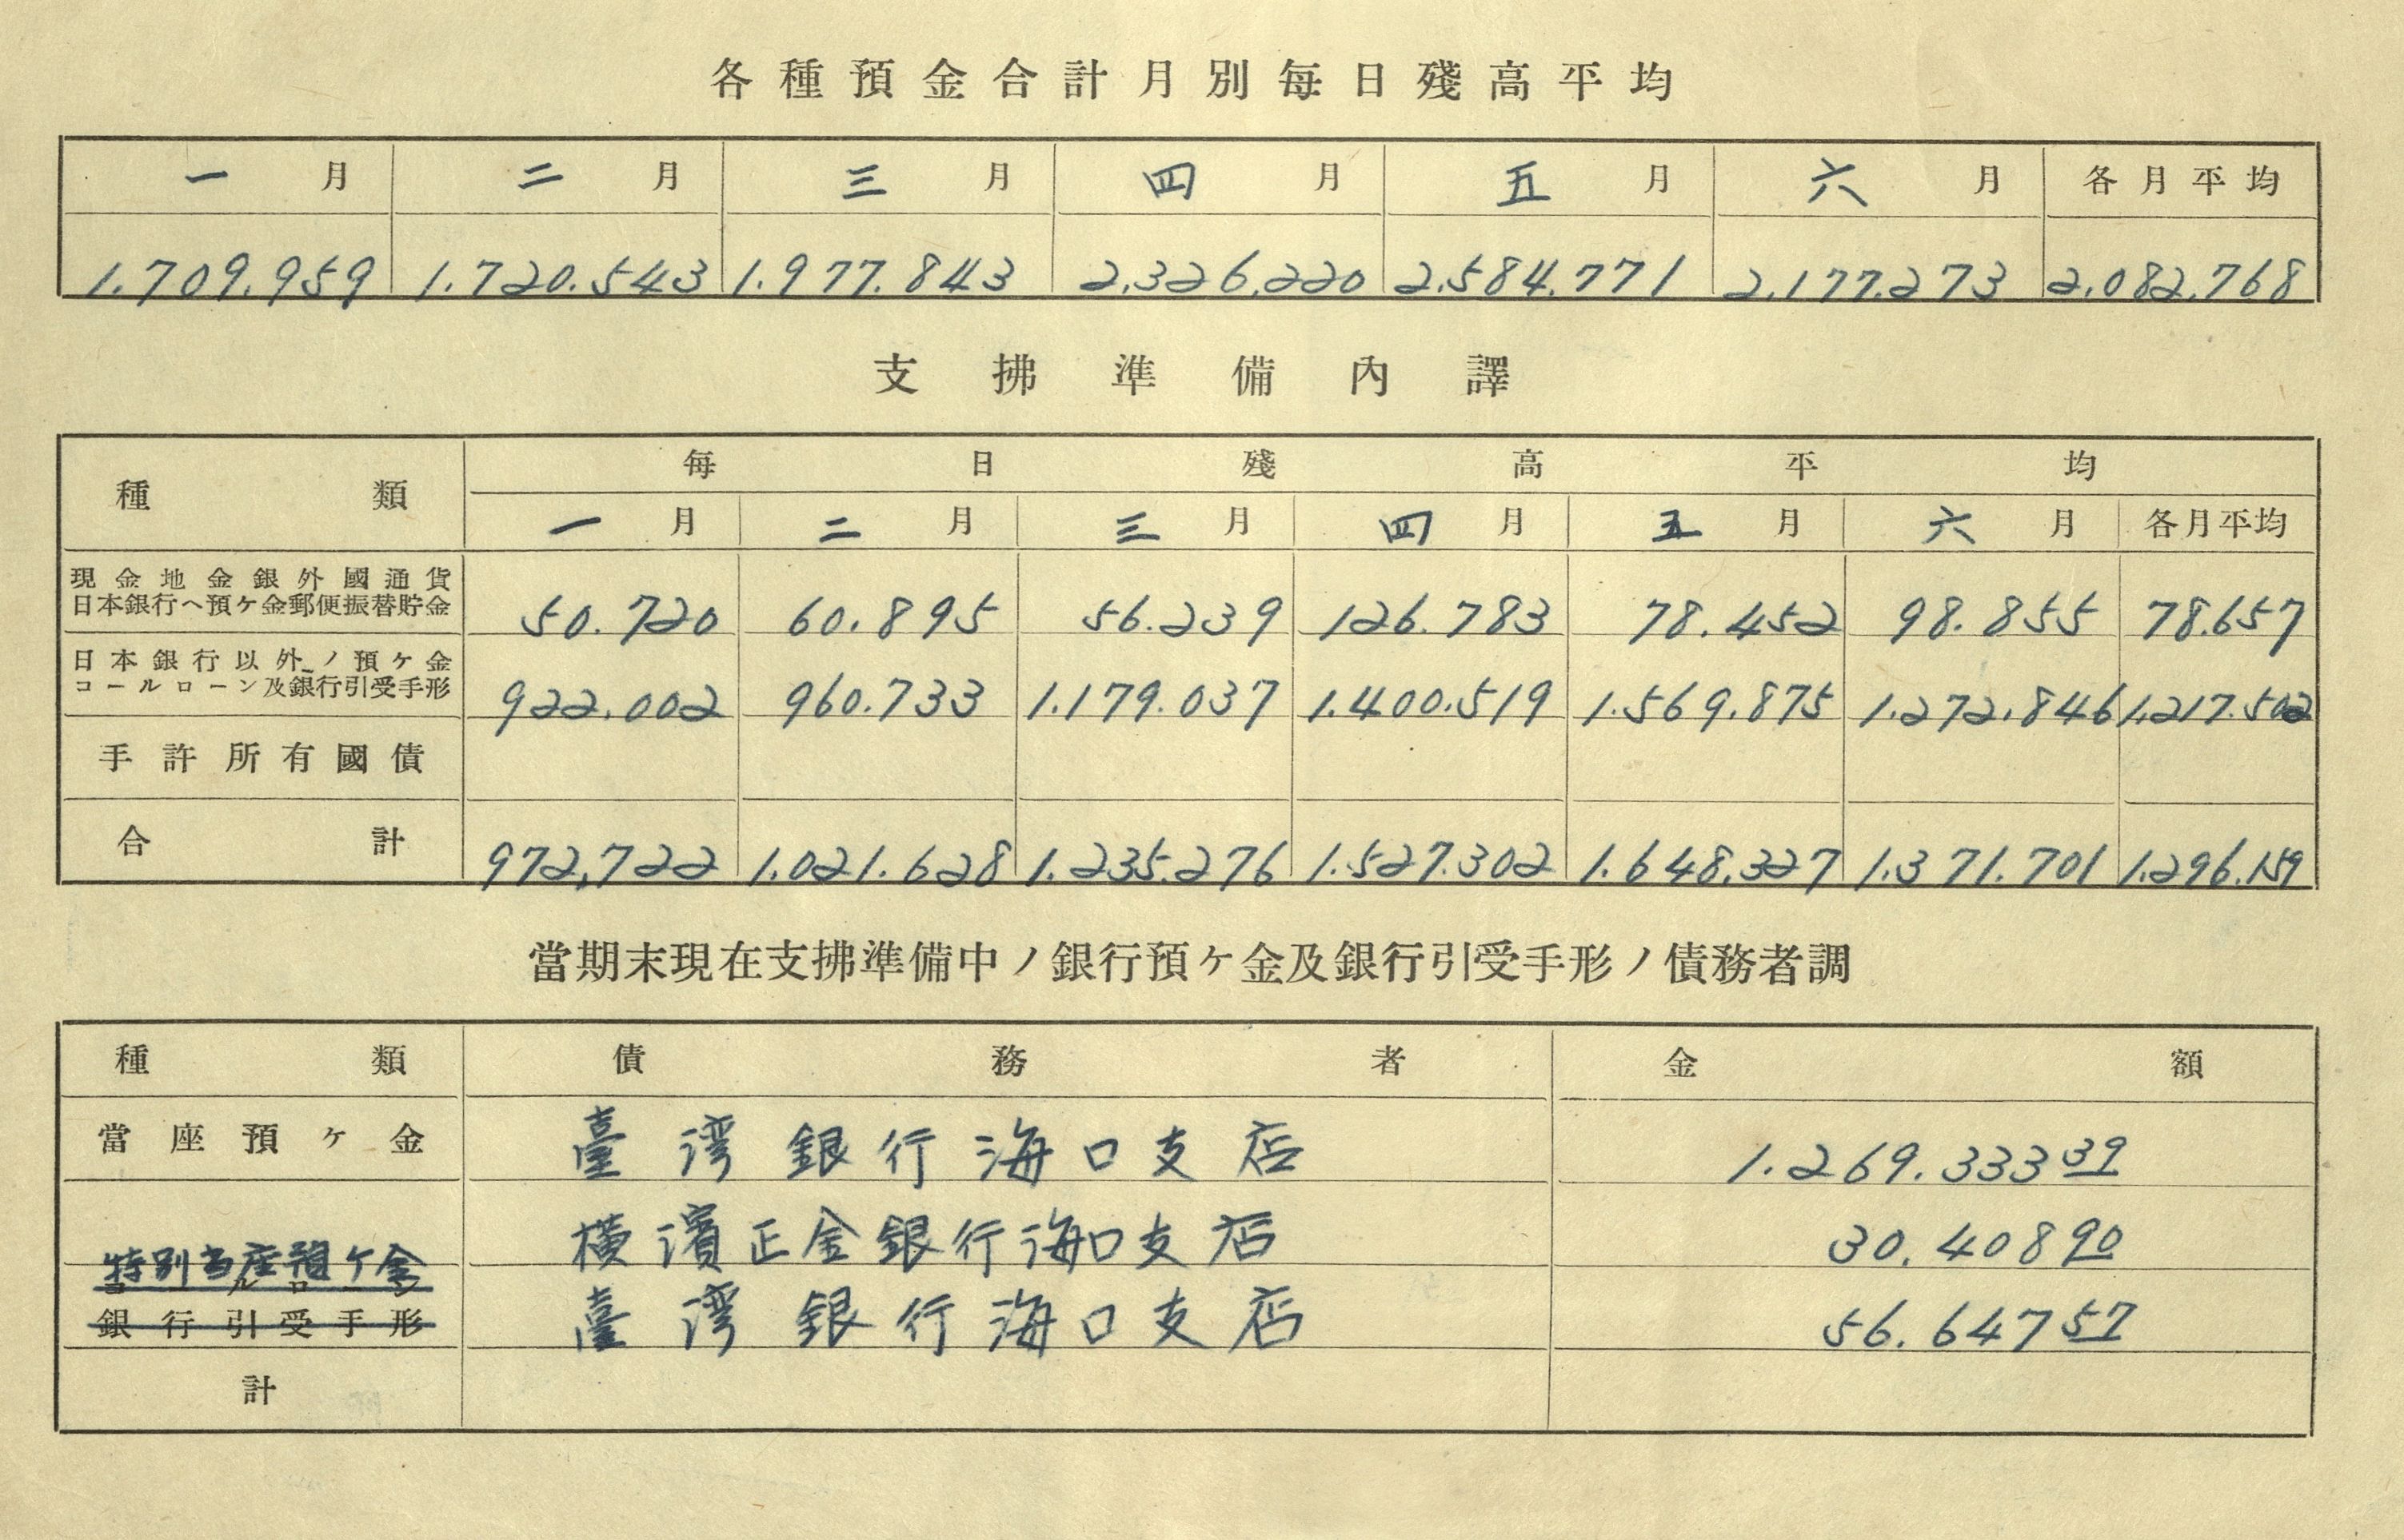 各種預金合計月別每日殘高平均
一月 二月 三月 四月 五月 六月 各月平均
1.709.959 1.720.543 1.977.843 2.326.220 2.584.771 2.177.273 2.082.768
支拂準備內譯
種類 每日殘高平均
一月 二月 三月 四月 五月 六月 各月平均
現金地金銀外國通貨
日本銀行ヘ預ケ金郵便振替貯金 50.720 60.895 56.239 126.783 78.452 98.855 78.657
日本銀行以外ノ預ケ金
コールローン及銀行引受手形 922.002 960.733 1.179.037 1.400.519 1.569.875 1.272.846 1.217.502
手許所有國債
合計 972,722 1.021.628 1.235.276 1.527.302 1.648.327 1.371.701 1.296.159
當期末現在支拂準備中ノ銀行預ケ金及銀行引受手形ノ債務者調
種類 債務者 金額
當座預ケ金 臺湾銀行海口支店 1.269.333 39
橫濱正金銀行海口支店 30.408 90
特別当座預ケ金
コールローン
銀行引受手形 臺湾銀行海口支店 56.647 57
計